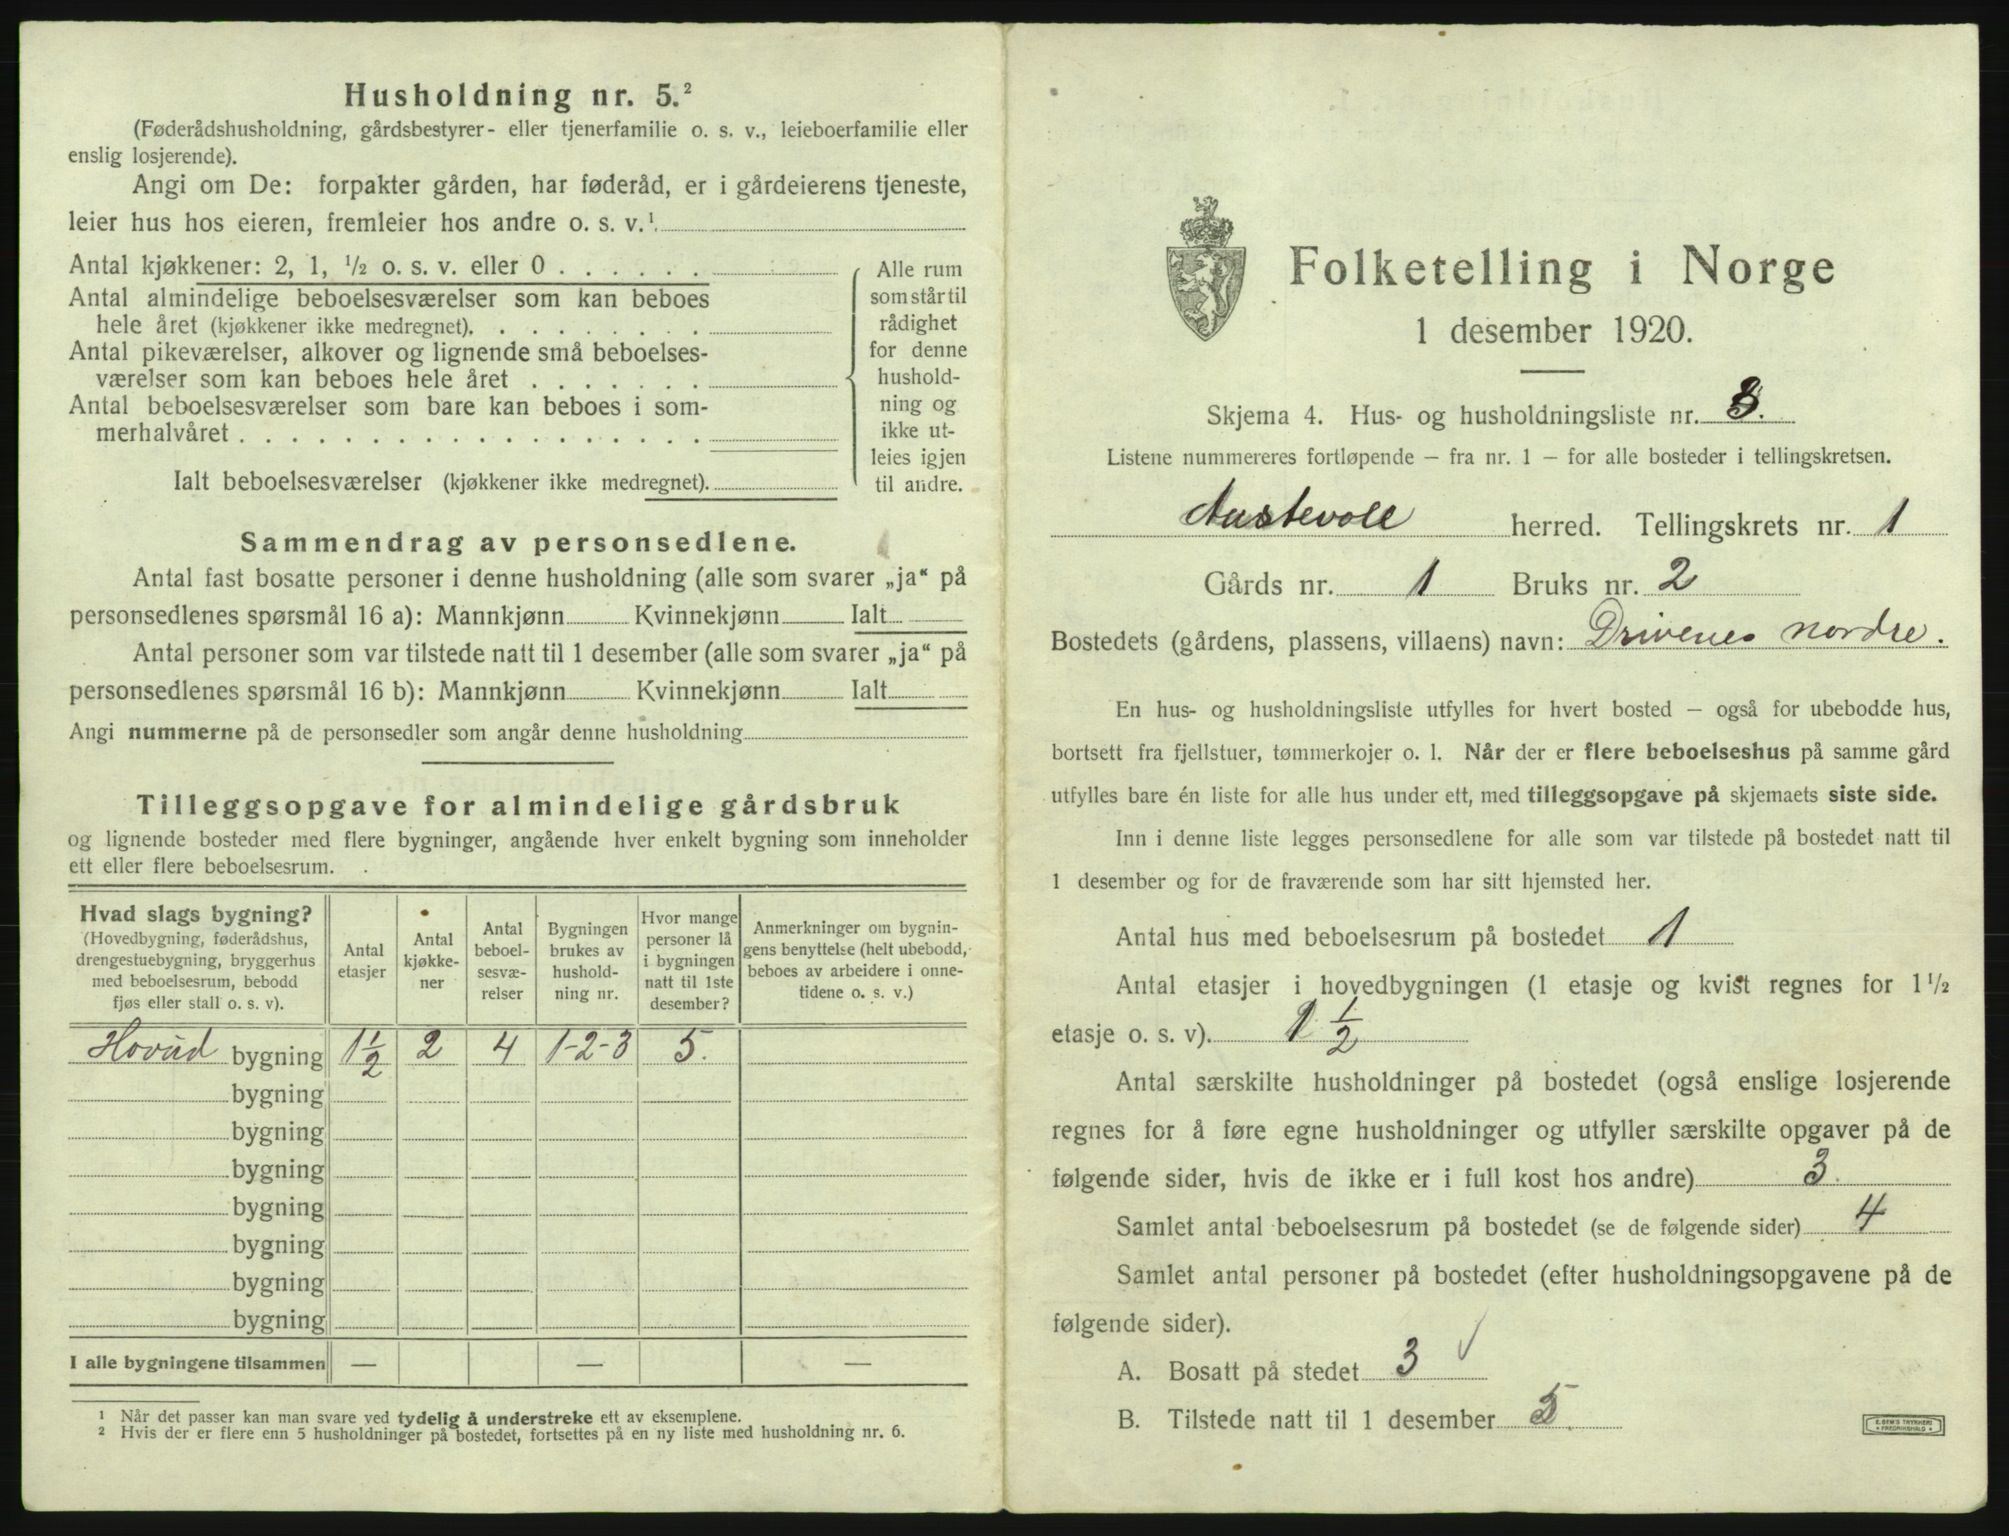 Husholdning nr. 5.²
(Føderådshusholdning, gårdsbestyrer- eller tjenerfamilie o. s. v., leieboerfamilie eller
enslig losjerende).
Angi om De: forpakter gården, har føderåd, er i gårdeierens tjeneste,
leier hus hos eieren, fremleier hos andre o. s. v.¹
Antal kjøkkener: 2, 1, ½ o. s. v. eller 0 . . . . . .
Antal almindelige beboelsesværelser som kan beboes
hele året (kjøkkener ikke medregnet). . . . . . . . .
Antal pikeværelser, alkover og lignende små beboelses-
værelser som kan beboes hele året . . . . . . .
Antal beboelsesværelser som bare kan beboes i som-
merhalvåret . . . . . . . . . . . . . . . . . .
Ialt beboelsesværelser (kjøkkener ikke medregnet).
Alle rum
som står til
rådighet
for denne
hushold-
ning og
ikke ut-
leies igjen
til andre.
Sammendrag av personsedlene.
Antal fast bosatte personer i denne husholdning (alle som svarer „ja“ på
personsedlenes spørsmål 16 a): Mannkjønn Kvinnekjønn Ialt
Antal personer som var tilstede natt til 1 desember (alle som svarer „ja“ på
personsedlenes spørsmål 16 b): Mannkjønn Kvinnekjønn Ialt
Angi nummerne på de personsedler som angår denne husholdning
Tilleggsopgave for almindelige gårdsbruk
og lignende bosteder med flere bygninger, angående hver enkelt bygning som inneholder
ett eller flere beboelsesrum.
Hvad slags bygning?
(Hovedbygning, føderådshus,
drengestuebygning, bryggerhus
med beboelsesrum, bebodd
fjøs eller stall o. s. v).
Antal
etasjer
Antal
kjøkke-
ner
Antal
beboel-
sesvæ-
relser
Bygningen
brukes av
hushold-
ning nr.
Hvor mange
personer lå
i bygningen
natt til 1ste
desember?
Anmerkninger om bygnin-
gens benyttelse (helt ubebodd,
beboes av arbeidere i onne-
tidene o. s. v.)
Hovud bygning 1½ 2 4 1-2-3 5.
bygning
bygning
bygning
bygning
bygning
bygning
bygning
I alle bygningene tilsammen — — —
¹ Når det passer kan man svare ved tydelig å understreke ett av eksemplene.
² Hvis der er flere enn 5 husholdninger på bostedet, fortsettes på en ny liste med husholdning nr. 6.
Folketelling i Norge
1 desember 1920.
Skjema 4. Hus- og husholdningsliste nr. 3.
Listene nummereres fortløpende – fra nr. 1 – for alle bosteder i tellingskretsen.
Austevoll herred. Tellingskrets nr. 1
Gårds nr. 1 Bruks nr. 2
Bostedets (gårdens, plassens, villaens) navn: Drivenes nordre.
En hus- og husholdningsliste utfylles for hvert bosted – også for ubebodde hus,
bortsett fra fjellstuer, tømmerkojer o. l. Når der er flere beboelseshus på samme gård
utfylles bare én liste for alle hus under ett, med tilleggsopgave på skjemaets siste side.
Inn i denne liste legges personsedlene for alle som var tilstede på bostedet natt til
1 desember og for de fraværende som har sitt hjemsted her.
Antal hus med beboelsesrum på bostedet 1
Antal etasjer i hovedbygningen (1 etasje og kvist regnes for 1½
etasje o. s. v). 1½
Antal særskilte husholdninger på bostedet (også enslige losjerende
regnes for å føre egne husholdninger og utfyller særskilte opgaver på de
følgende sider, hvis de ikke er i full kost hos andre) 3.
Samlet antal beboelsesrum på bostedet (se de følgende sider) 4
Samlet antal personer på bostedet (efter husholdningsopgavene på de
følgende sider).
A. Bosatt på stedet 3 ✓
B. Tilstede natt til 1 desember 5.
E. SEM'S TRYKKERI
• FREDRIKSHALD •